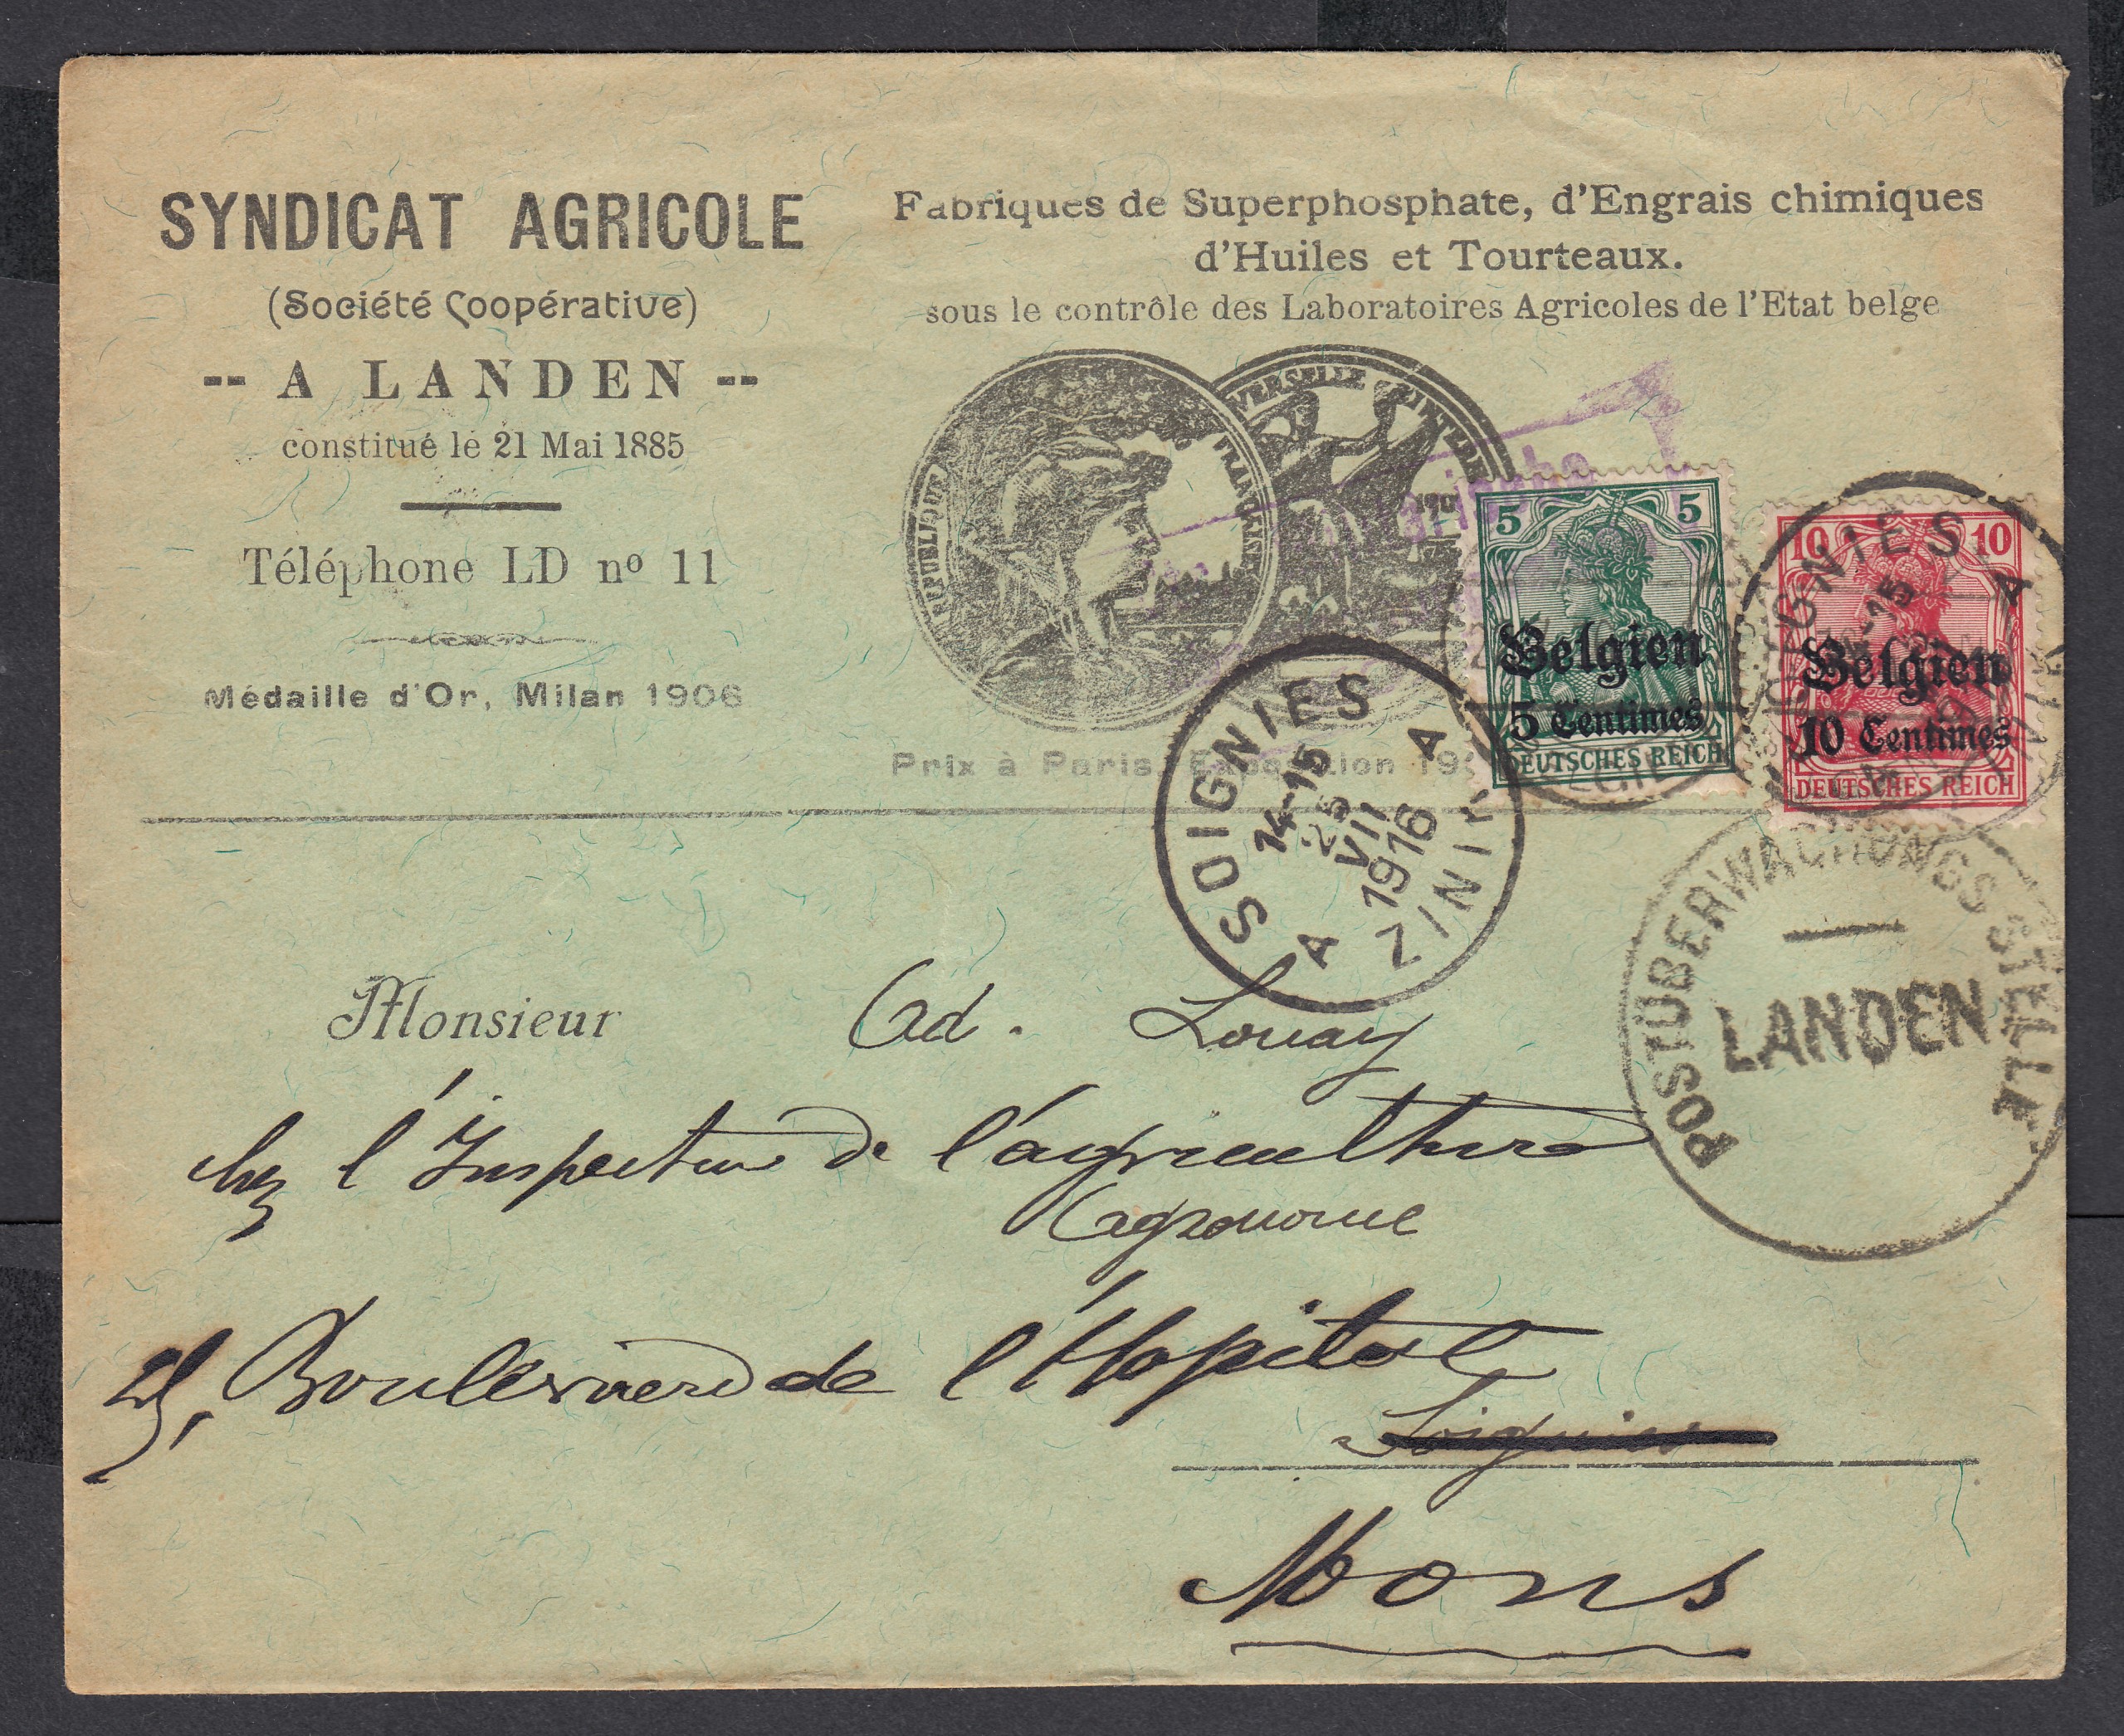 SYNDICAT AGRICOLE
(Société Coopérative)
-- A LANDEN --
constitué le 21 Mai 1885
Téléphone LD nº 11
Médaille d'Or, Milan 1906
Fabriques de Superphosphate, d'Engrais chimiques
d'Huiles et Tourteaux.
sous le contrôle des Laboratoires Agricoles de l'Etat belge
REPUBLIQUE FRANÇAISE
VERSELLE
Prix à Paris, Exposition
5 5
Belgien
5 Centimes
DEUTSCHES REICH
10 10
Belgien
10 Centimes
DEUTSCHES REICH
SOIGNIES A
15
SOIGNIES A
14-15
25
VII
1916
A ZINNIK
POSTÜBERWACHUNGSSTELLE
LANDEN
Monsieur Ad. Louay
chez l'Inspecteur de l'agriculture
agronome
25, Boulevard de l'Hopital
Soignies
Mons